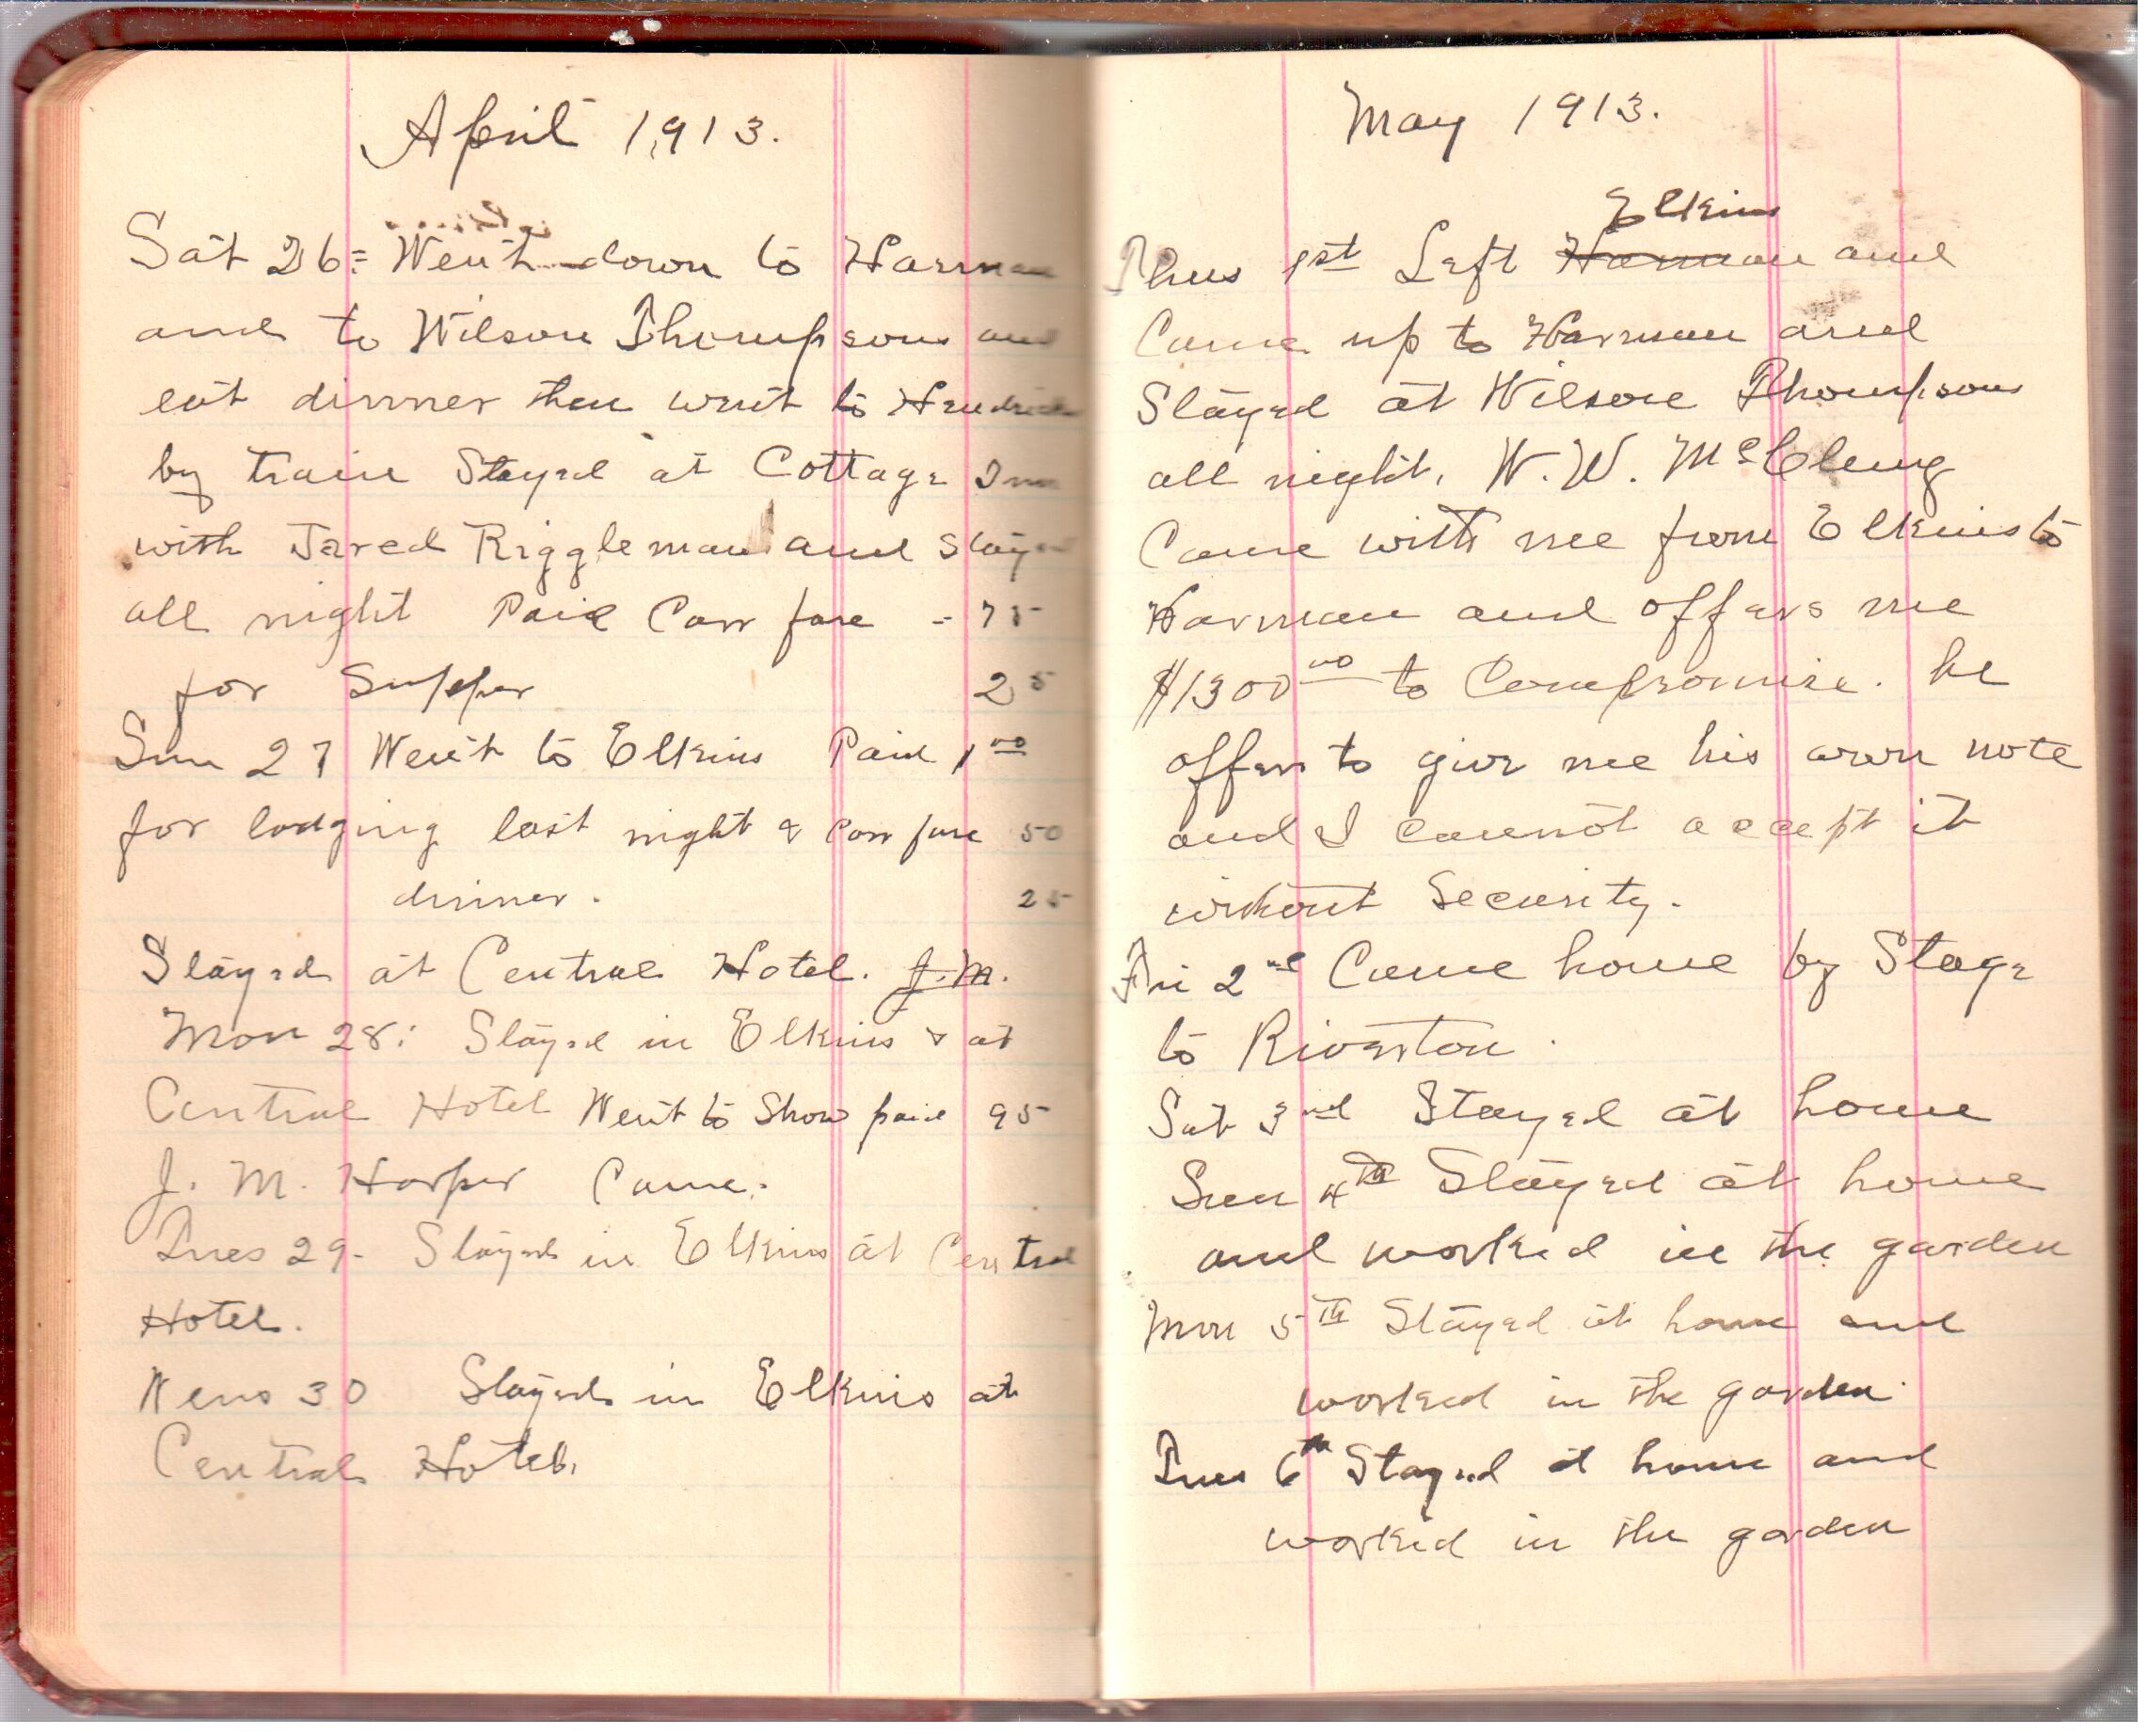 April 1913.
Sat 26 = Went down to Harman
and to Wilson Thompsons and
eat dinner then went to Hendricks
by train Stayed at Cottage Inn
with Jared Riggleman and Stayed
all night Paid Carr fare - 75
for Supper 25
Sun 27 Went to Elkins Paid 1 00
for lodging last night & Carr fare 50
dinner. 25
Stayed at Central Hotel. J.M.
Mon 28: Stayed in Elkins & at
Central Hotel Went to Show paid 95
J. M. Harper Came.
Tues 29- Stayed in Elkins at Central
Hotel.
Wens 30 Stayed in Elkins at
Central Hotel.
May 1913.
Elkins
Thus 1st Left Harman and
Came up to Harman and
Stayed at Wilson Thompsons
all night. W. W. McClung
Came with me from Elkins to
Harman and offers me
$1300 00 to Compromise. he
offers to give me his own note
and I cannot accept it
without Security.
Fri 2nd Came home by Stage
to Riverton.
Sat 3nd Stayed at home
Sun 4th Stayed at home
and worked in the garden
Mon 5th Stayed at home and
worked in the garden.
Tues 6th Stayed at home and
worked in the garden